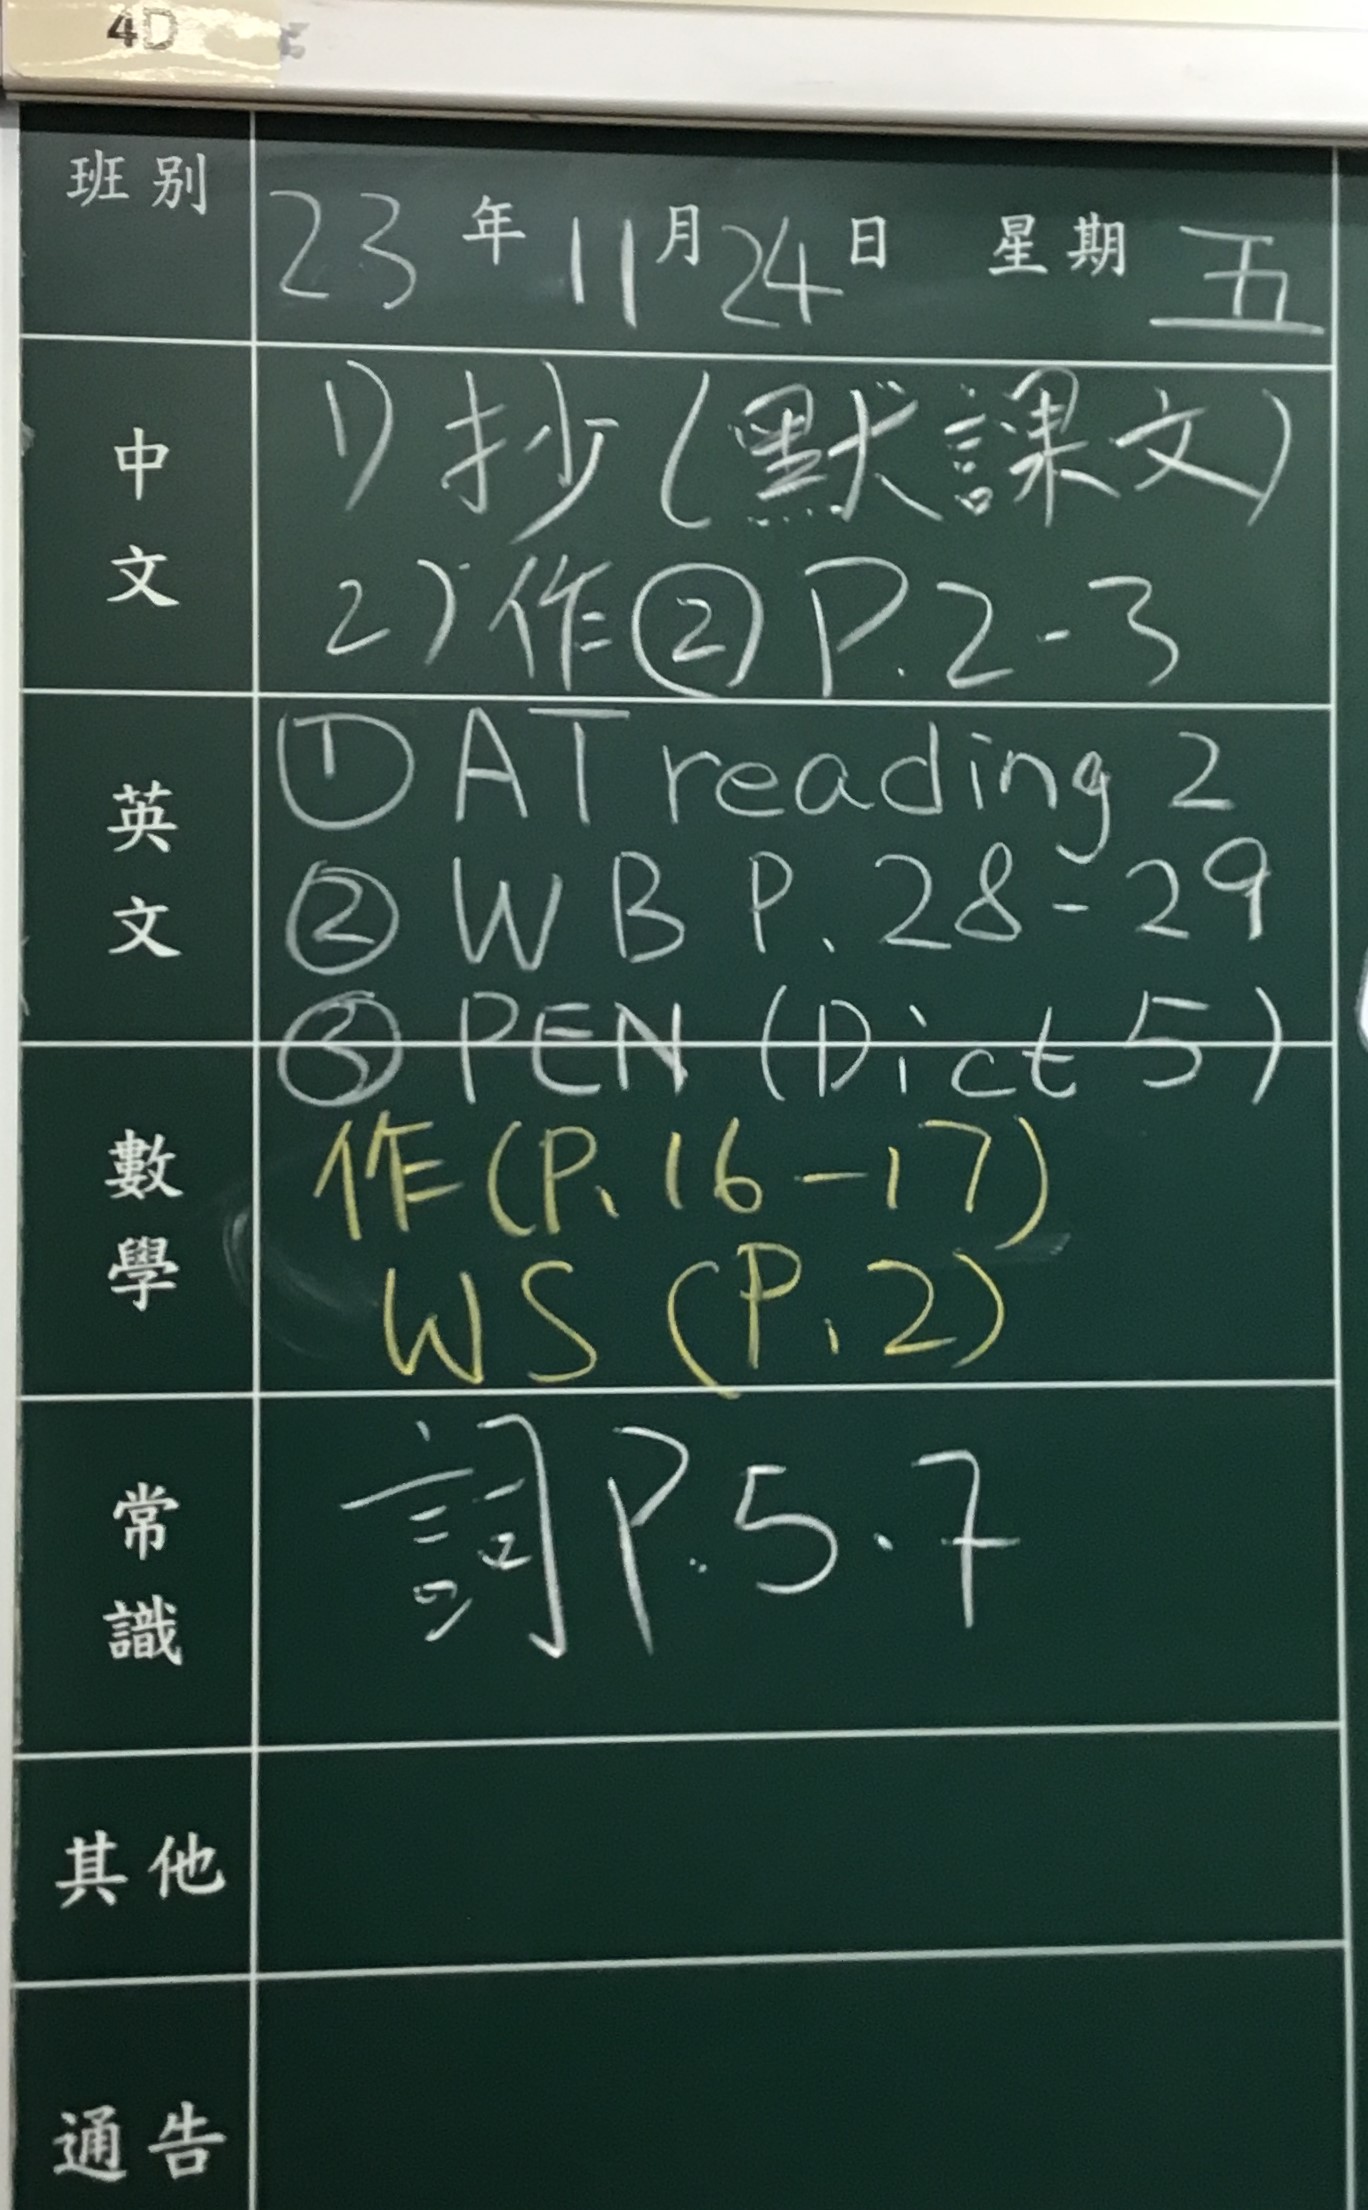 4D
班別
23 年 11 月 24 日 星期 五
中文
1) 抄(默課文)
2) 作② P.2-3
英文
① AT reading 2
② WB P.28-29
③ PEN (Dict 5)
數學
作(P.16-17)
WS (P.2)
常識
詞 P.5.7
其他
通告